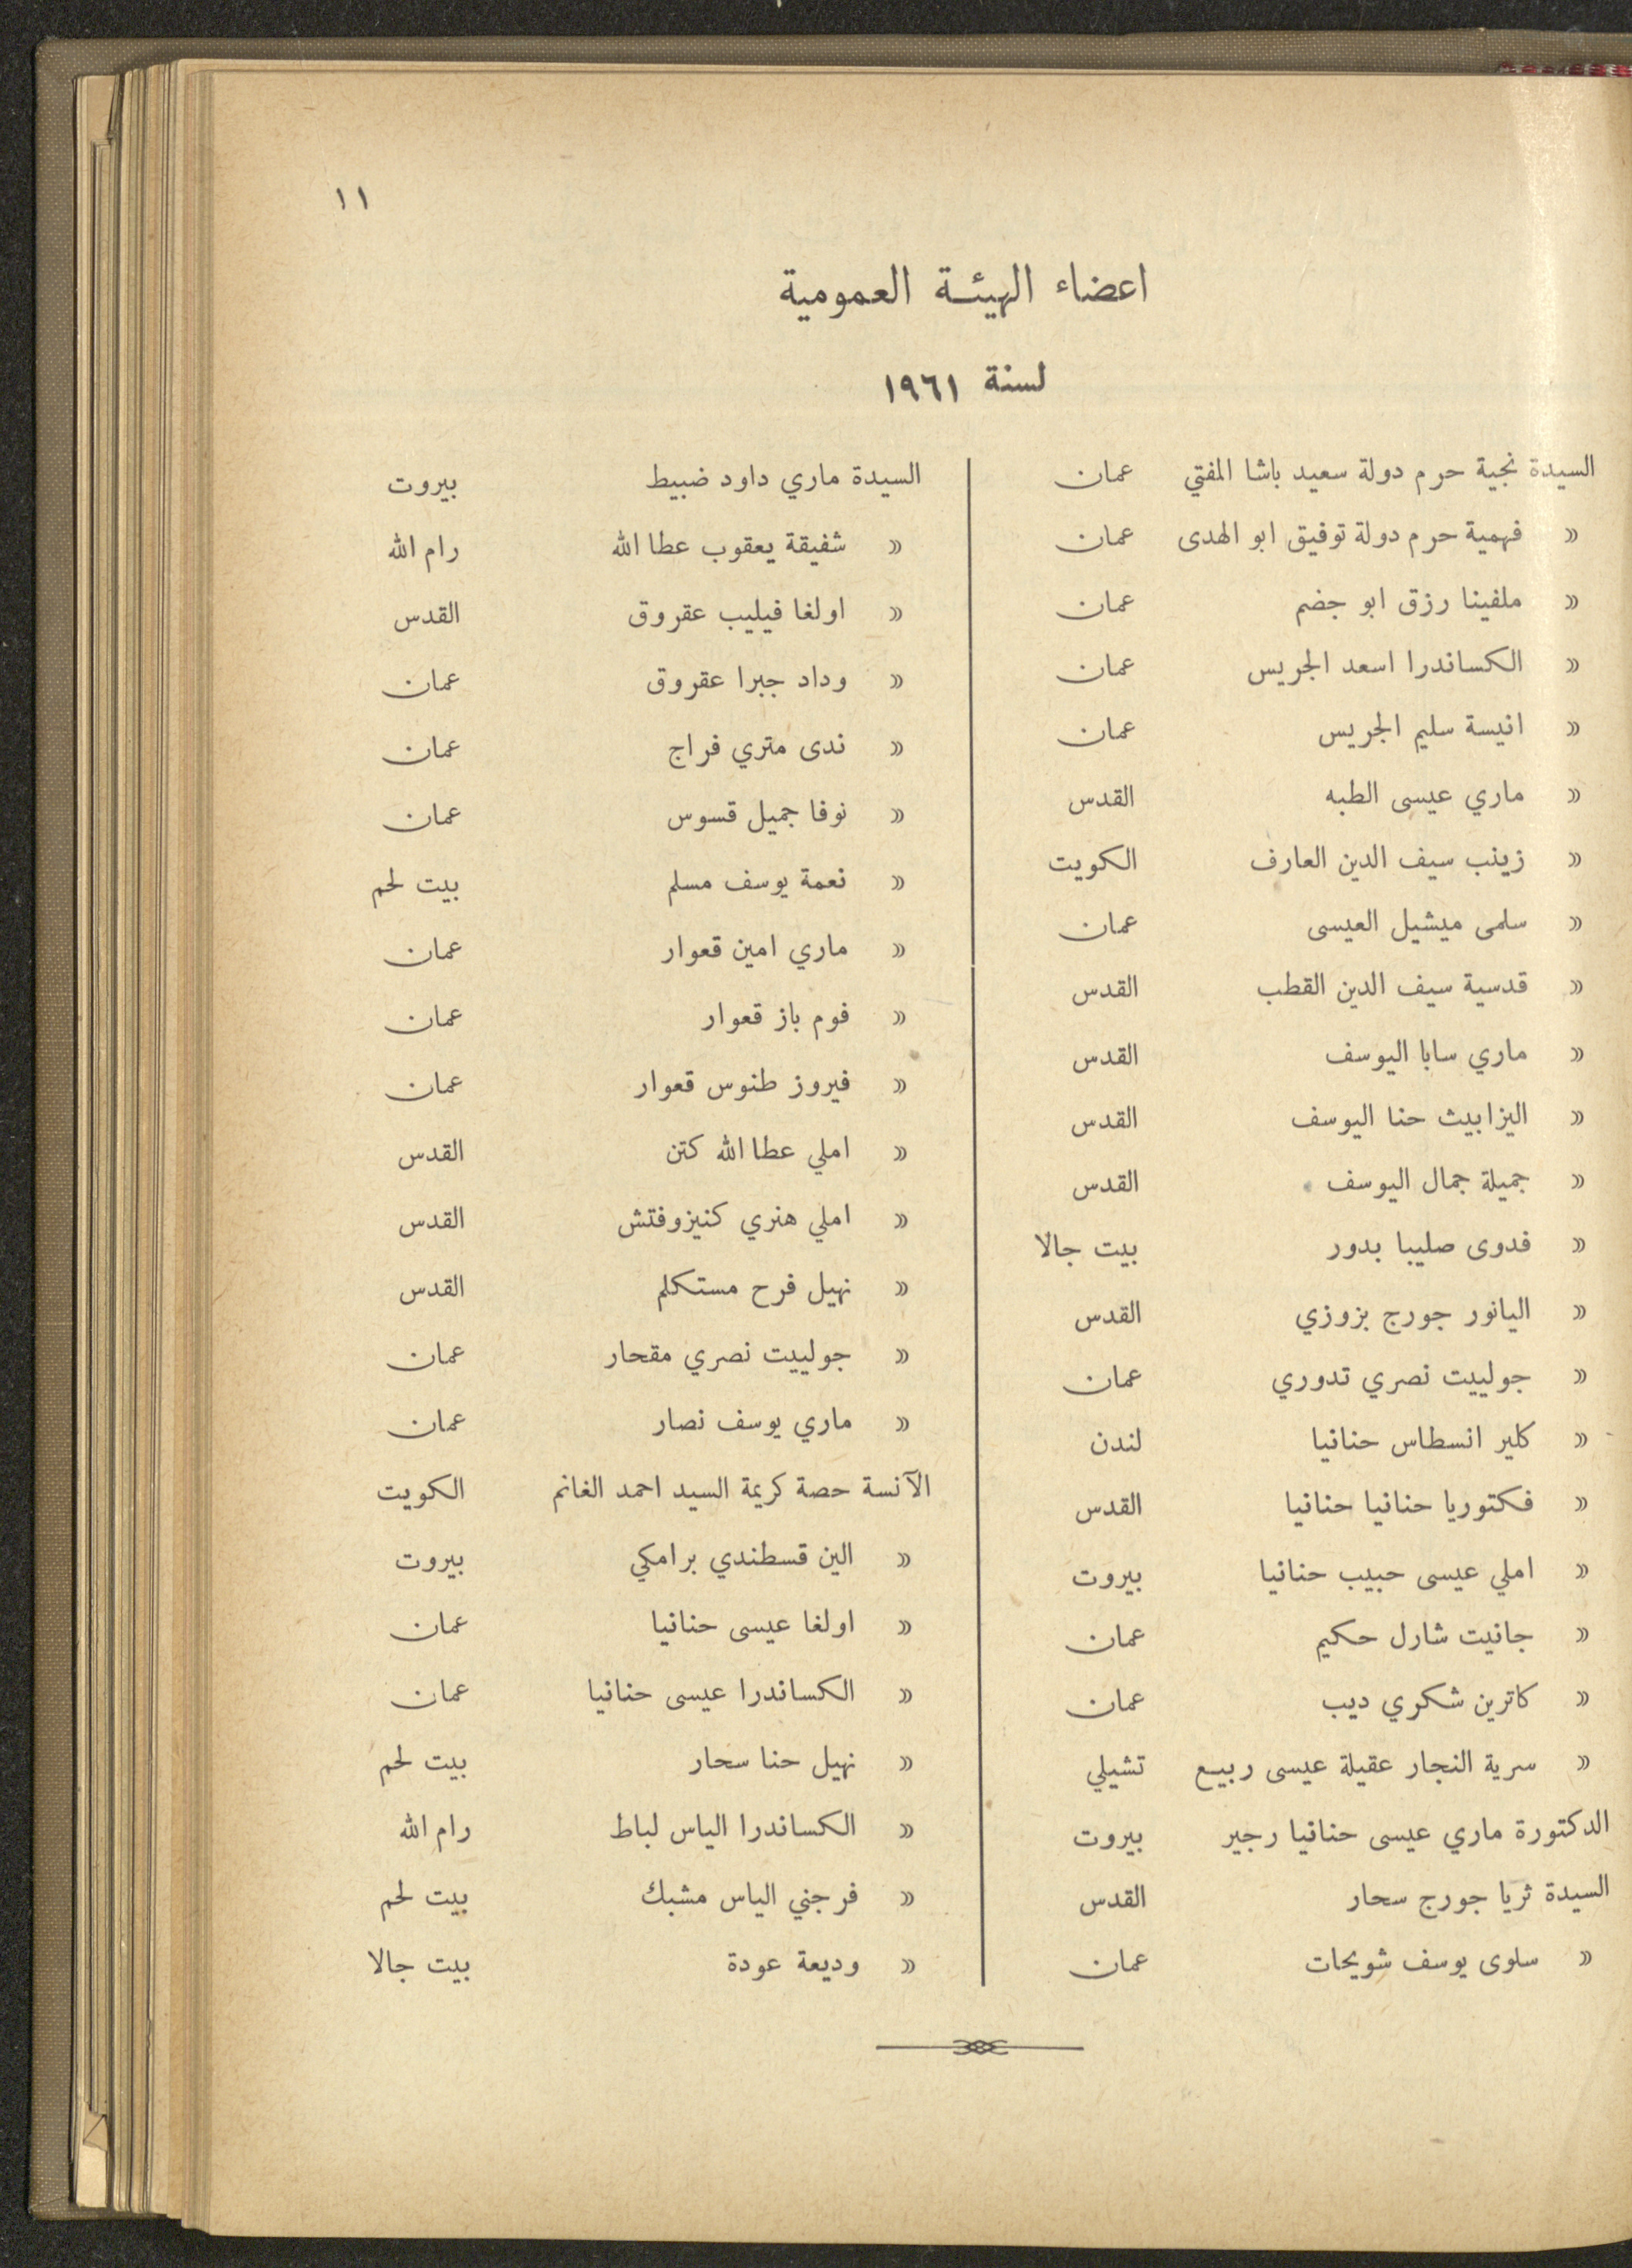 ١١
اعضاء الهيئة العمومية
لسنة ١٩٦١
السيدة نجية حرم دولة سعيد باشا المفتي عمان
» فهمية حرم دولة توفيق ابو الهدى عمان
» ملفينا رزق ابو جضم عمان
» الكساندرا اسعد الجريس عمان
» انيسة سليم الجريس عمان
» ماري عيسى الطبه القدس
» زينب سيف الدين العارف الكويت
» سلمى ميشيل العيسى عمان
» قدسية سيف الدين القطب القدس
» ماري سابا اليوسف القدس
» اليزابيث حنا اليوسف القدس
» جميلة جمال اليوسف القدس
» فدوى صليبا بدور بيت جالا
» اليانور جورج بزوزي القدس
» جولييت نصري تدوري عمان
» كلير انسطاس حنانيا لندن
» فكتوريا حنانيا حنانيا القدس
» املي عيسى حبيب حنانيا بيروت
» جانيت شارل حكيم عمان
» كاترين شكري ديب عمان
» سرية النجار عقيلة عيسى ربيع تشيلي
الدكتورة ماري عيسى حنانيا رجير بيروت
السيدة ثريا جورج سحار القدس
» سلوى يوسف شويحات عمان
السيدة ماري داود ضبيط بيروت
» شفيقة يعقوب عطا الله رام الله
» اولغا فيليب عقروق القدس
» وداد جبرا عقروق عمان
» ندى متري فراج عمان
» نوفا جميل قسوس عمان
» نعمة يوسف مسلم بيت لحم
» ماري امين قعوار عمان
» فوم باز قعوار عمان
» فيروز طنوس قعوار عمان
» املي عطا الله كتن القدس
» املي هنري كنيزوفتش القدس
» نهيل فرح مستكلم القدس
» جولييت نصري مقحار عمان
» ماري يوسف نصار عمان
الآنسة حصة كريمة السيد احمد الغانم الكويت
» الين قسطندي برامكي بيروت
» اولغا عيسى حنانيا عمان
» الكساندرا عيسى حنانيا عمان
» نهيل حنا سحار بيت لحم
» الكساندرا الياس لباط رام الله
» فرجني الياس مشبك بيت لحم
» وديعة عودة بيت جالا